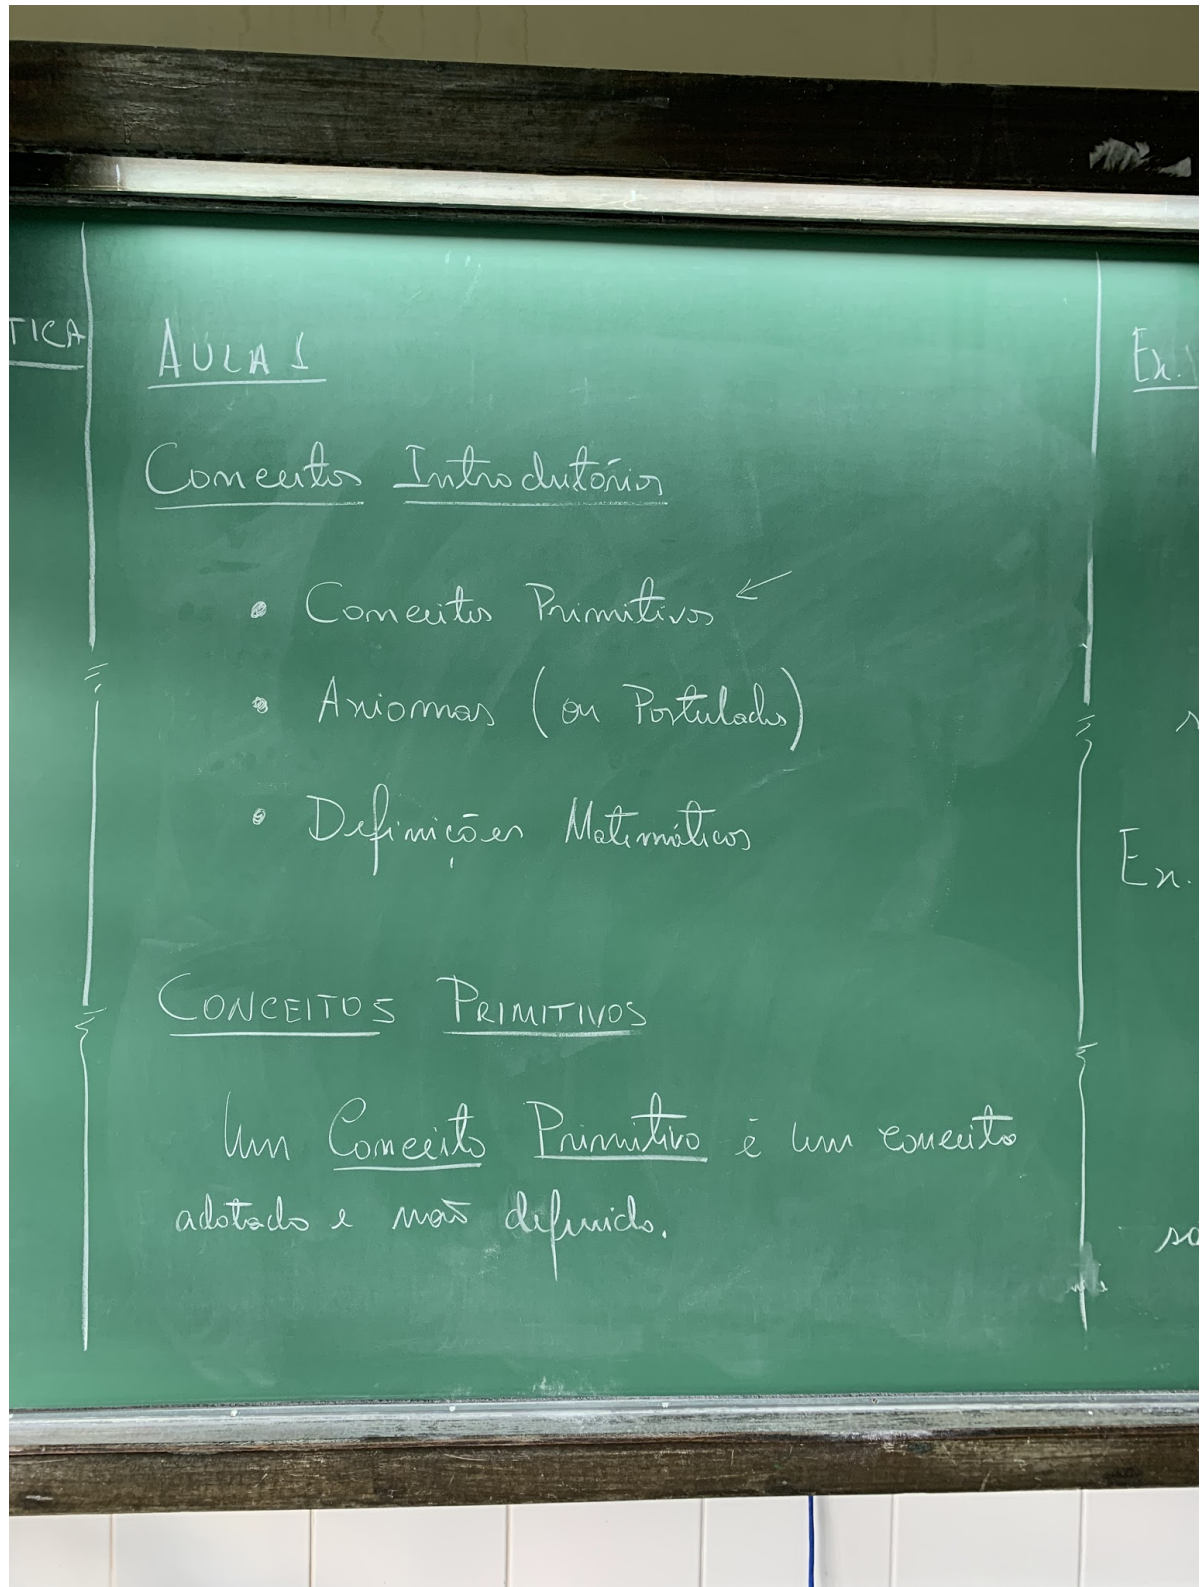 TICA
AULA 1
Conceitos Introdutórios
• Conceitos Primitivos ←
• Axiomas (ou Postulados)
• Definições Matemáticas
CONCEITOS PRIMITIVOS
Um Conceito Primitivo é um conceito
adotado e não definido.
Ex.
Ex.